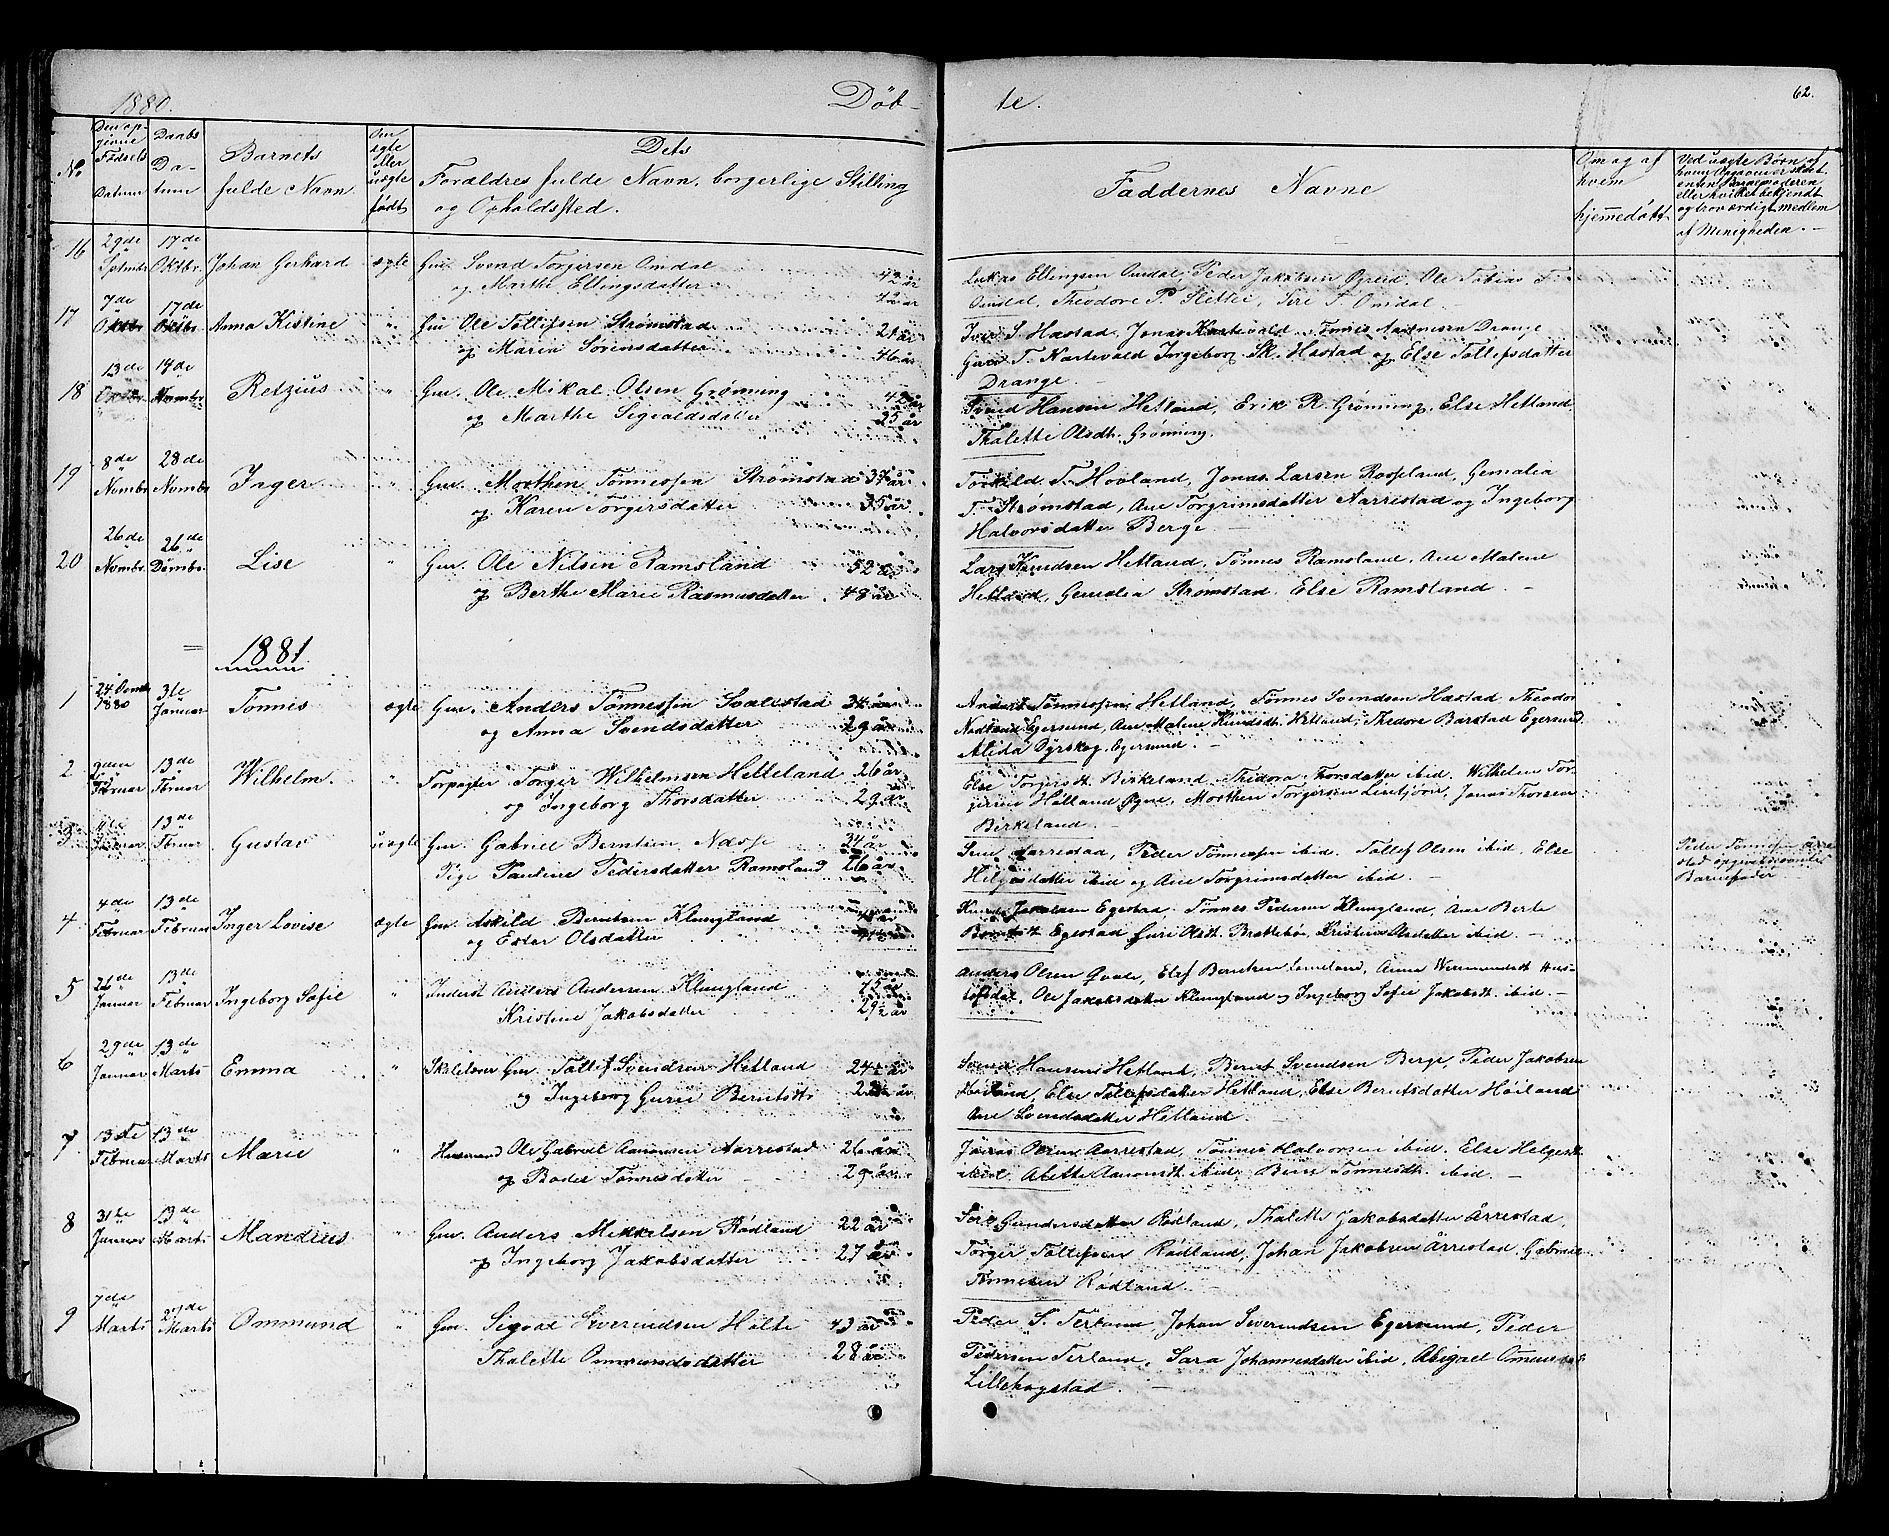 1880. Døb- te. 62.
No
Den op-
givne
Fødsels
Datum
Daabs
Da-
tum
Barnets
fulde Navn.
Om
ægte
eller
uægte
født
Dets
Forældres fulde Navn, borgerlige Stilling
og Opholdssted.
Faddernes Navne
Om og af
hvem
hjemmedøbt
Ved uægte Børn af
hvem Opgaven er skeet
enten Barnemoderen
eller hvilket bekjendt
og troværdigt medlem
af Menigheden.
16 29de Septmbr. 17de Oktbr. Johan Gerhard ægte Gm. Svend Torgersen Omdal 42 år
og Marthe Ellingsdatter 42 år
Lukas Ellingsen Omdal, Peder Jakobsen Ogreid, Ole Tobias T.
Omdal, Theodore P. Slettei, Siri T. Omdal.
17 7de Oktbr. 17de Oktbr. Anna Kistine " Gm Ole Tollefsen Strømstad
og Maren Sørensdatter 46 år
Iver S. Hæstad, Jonas Kartevold, Tønnes Rasmusen Drange
T. Kartevold Ingeborg Sk. Hæstad og Else Tollefsdatter
Drange.
18 13de Oktbr. 14de Novmbr. Retzius " Gm. Ole Mikal Olsen Grønning 42 år
og Marthe Sigvaldsdatter 35 år
Svend Hansen Hetland, Erik R. Grønning, Else Hetland,
Thalette Olsdtr. Grønning.
19 8de Novmbr 28de Novmbr Inger " Gm. Morthen Tønnessen Strømstad 37 år
og Karen Torgersdatter 35 år
Torkild T. Hovland, Jonas Larsen Rosseland, Gemalia
T. Strømstad, Ane Torgrimsdatter Aarrestad og Ingeborg
Halvorsdatter Berge —
20 26de Novmbr. 26de Desmbr. Lise " Gm. Ole Nilsen Ramsland 52 år
og Berthe Marie Rasmusdatter 48 år
Lars Knudsen Hetland, Tønnes Ramsland, Ane Malene
Hetland, Gemalia Strømstad, Else Ramsland. —
1881
1 24 1880 31te Januar Tønnes ægte Gm. Anders Tønnessen Svalestad 34 år
og Anna Svendsdatter 29 år
Anders Tønnessen Hetland, Tønnes Svendsen Hæstad Theodor
Nodland Egersund, Ane Malene Knudsdt. Hetland, Thedore Barstad Egersund
Alida Dyrskog, Egersund. —
2 Februar 13de Februar Wilhelm. " Torger Wilhelmsen Helleland 26 år
og Ingeborg Thorsdatter 29 år
Else Torgersdt. Birkeland, Thedora Thorsdatter ibid, Wilhelm Tor-
gersen Helland Øgne, Morthen Torgersen Liestjørn, Jonas Thorsen
Birkeland. —
3 Januar 13de Februar Gustav uægte Gm. Gabriel Berntsen Næsse 34 år
Pige Pauline Pedersdatter Ramsland 26 år
Aarrestad, Peder Tønnesen ibid. Tollef Olsen ibid, Else
Helgesdatter ibid og Ane Torgrimsdatter ibid. —
Peder Tønnesen Arre-
stad
Barnefader
4 4de Februar 13de Februar Inger Lovise ægte Gm. Askild Berntsen Klungland
og Ester Olsdatter
Jakobsen Egestad, Tønnes Pedersen Klungland, Ane Berte
Egestad Guri Olsdt. Brattebø, Kristine Olsdatter ibid. —
5 26de Januar 13de Februar Ingeborg Sofie " Inderst Anders Andersen Klungland 75 år
Kristine Jakobsdatter 29½ år
Anders Olsen Qvale, Elef Berntsen Lomeland, Anna
Ole Jakobsdatter Klungland og Ingeborg Sofie Jakobsdt. ibid. —
6 29de Januar 13de Marts Emma " Skolelærer Gm. Tollef Svendsen Hetland 24½ år
og Ingeborg Gurie Berntsdtr
Svend Hansen Hetland, Bernt Svendsen Berge, Peder Jakobsen
Else Tollefsdatter Hetland, Else Berntsdatter Høiland
Ane Svendsdatter Hetland. —
7 13de Februar 13de Marts Marie " Husmand Ole Gabriel Aanonsen Aarrestad 26 år
og Bodel Tønnesdatter 29 år
Jonas Olsen Aarrestad, Tønnes Halvorsen ibid, Else Helgesdt.
ibid, Alette Aanonsdt. ibid, Berte Tønnesdt. ibid. —
8 31te Januar 13de Marts Mandius " Gm. Anders Mikkelsen Rødland 22 år
og Ingeborg Jakobsdatter 27 år
Siri Gundersdatter Rødland, Thalette Jakobsdatter Årrestad,
Torger Tollefsen Rødland, Johan Jakobsen Årrestad, Gabriel
Tønnesen Rødland. —
9 7de Marts 27de Marts Ommund " Gm. Sigvad Siverindsen Holte 43 år
Thalette Ommundsdatter 28 år
Peder S. Terland, Johan Siverindsen Egersund, Peder
Pedersen Terland, Sara Johannesdatter ibid, Abigael
Lillehogstad. —